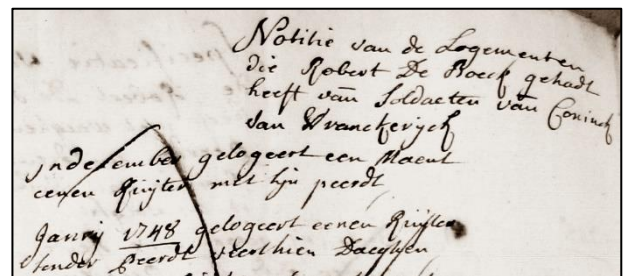 Notitie van de Logementen
die Robert De Boeck gehadt
heeft van Soldaeten van Coninck
van Vranckeryck
in december gelogeert een Maent
eenen Ruijter met sijn peerdt
Janrij 1748 gelogeert eenen Ruijter
sonder Peerdt veerthien Daeghen